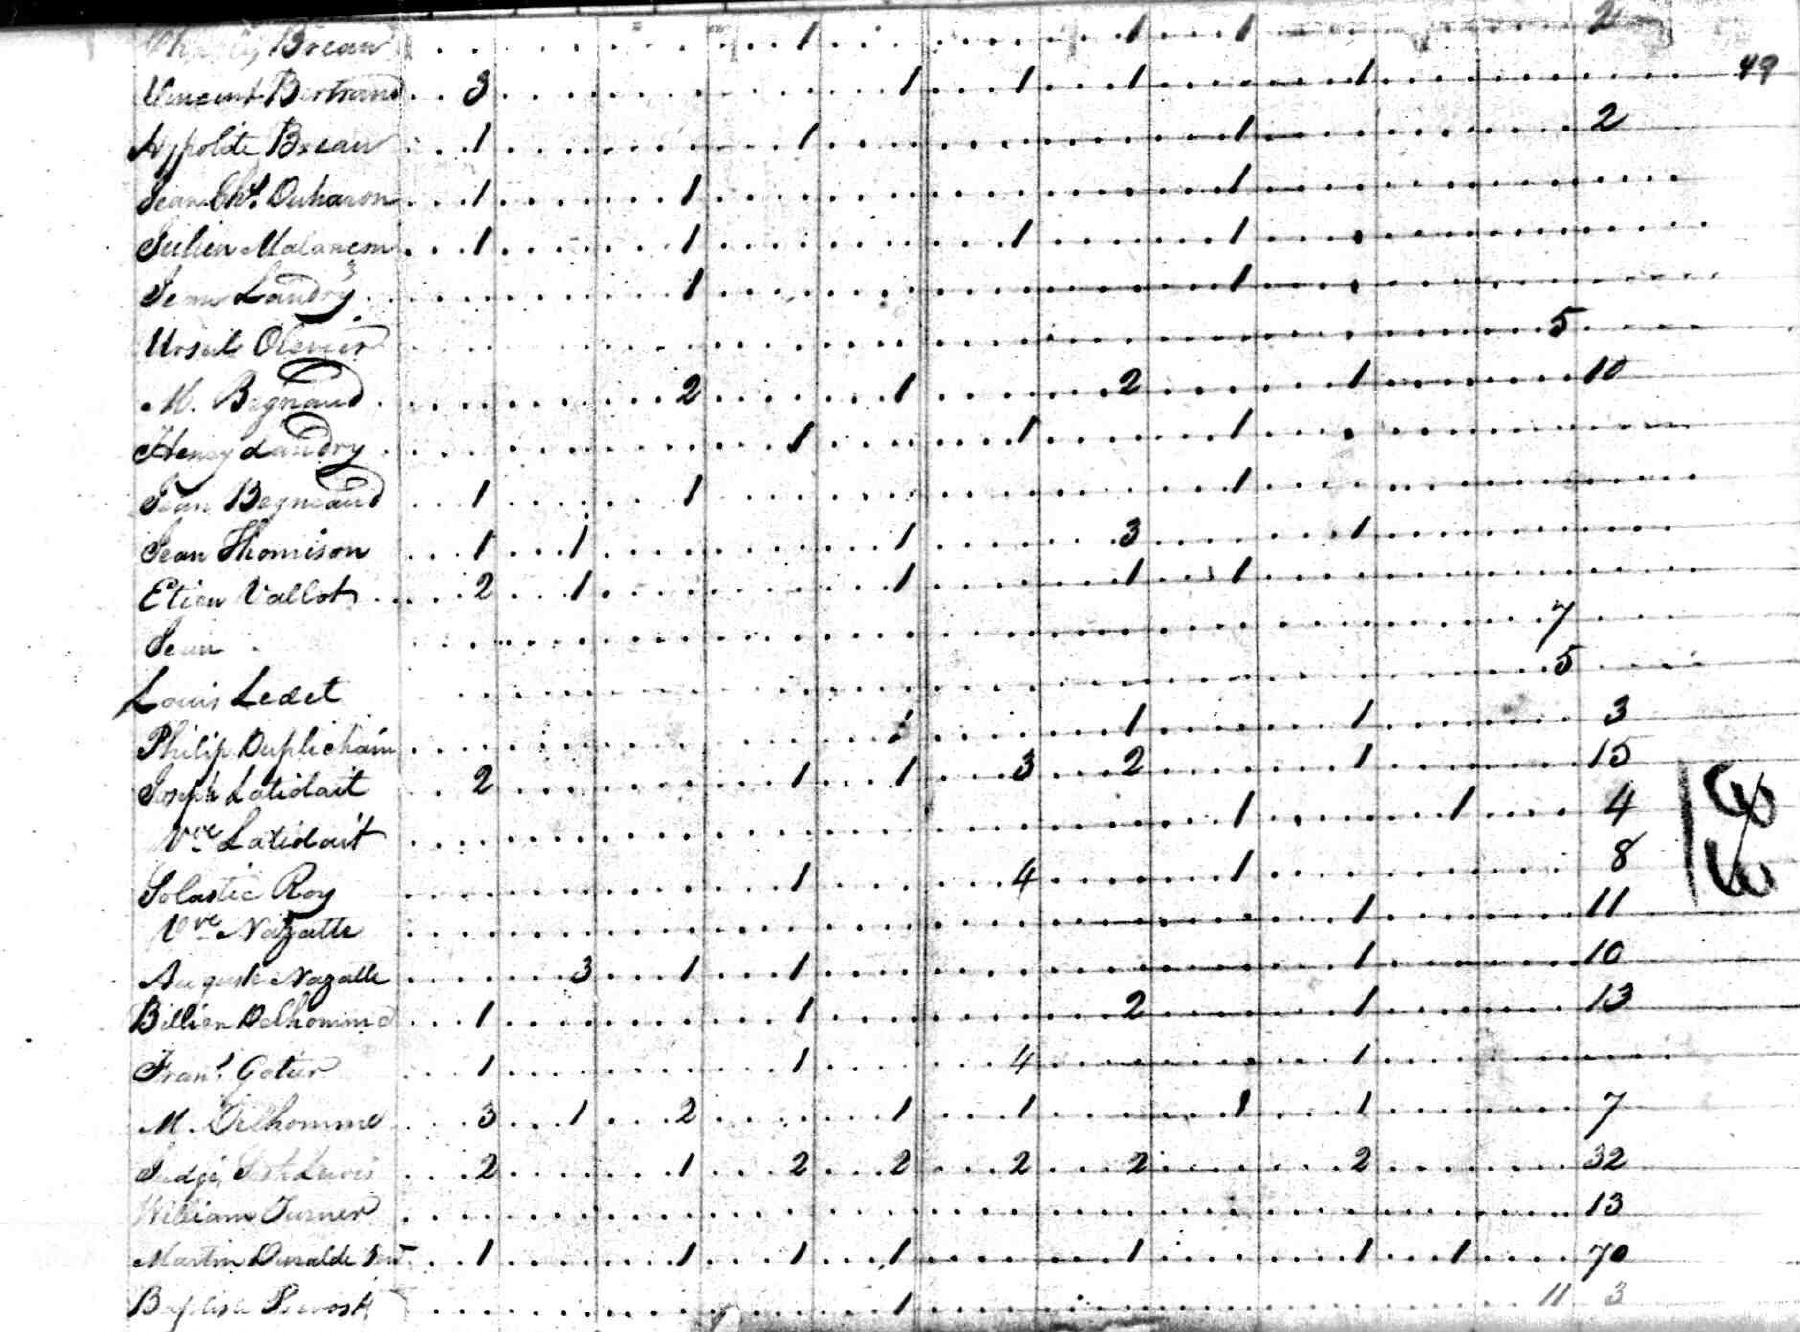 Breau 1 1 1 2
Vincent Bertrand 3 1 1 1 1 49
Hypolite Breau 1 1 1 2
Jean Chs. Duharon 1 1 1
Julien Malancon 1 1 1 1
Jean Landry 1 1
Ursule Olivier 5
M. Begnaud 2 1 2 1 10
Henry Landry 1 1 1
Jean Begneaud 1 1 1
Jean Thomison 1 1 1 3 1
Etien Vallot 2 1 1 1 1
Jean 7
Louis Ledet 5
Philip Duplichain 1 1 1 3
Joseph Latiolait 2 1 1 3 2 1 15
Vve Latiolait 1 1 4
Solastic Roy 1 4 1 8
Vve Nazatte 1 11
Auguste Nazatte 3 1 1 1 10
Billien Delhomme 1 1 2 1 13
Frans. Gotier 1 1 4 1
M. Delhomme 3 1 2 1 1 1 1 7
Judge Lewis 2 1 2 2 2 2 2 32
William Turner 13
Martin Duralde 1 1 1 1 1 1 1 70
Baptiste Prevost 1 11 3